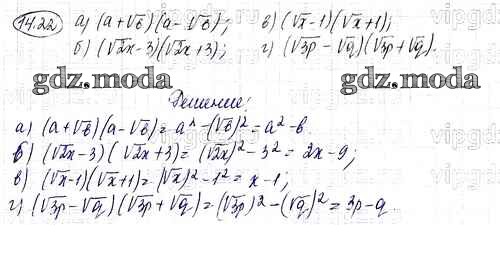 14.22 а) (a+√b)(a-√b); в) (√x-1)(√x+1);
б) (√2x-3)(√2x+3); г) (√3p-√q)(√3p+√q).
gdz.moda gdz.moda
Решение:
а) (a+√b)(a-√b)=a²-(√b)²=a²-b.
б) (√2x-3)(√2x+3)=(√2x)²-3²=2x-9;
в) (√x-1)(√x+1)=(√x)²-1²=x-1;
г) (√3p-√q)(√3p+√q)=(√3p)²-(√q)²=3p-q.